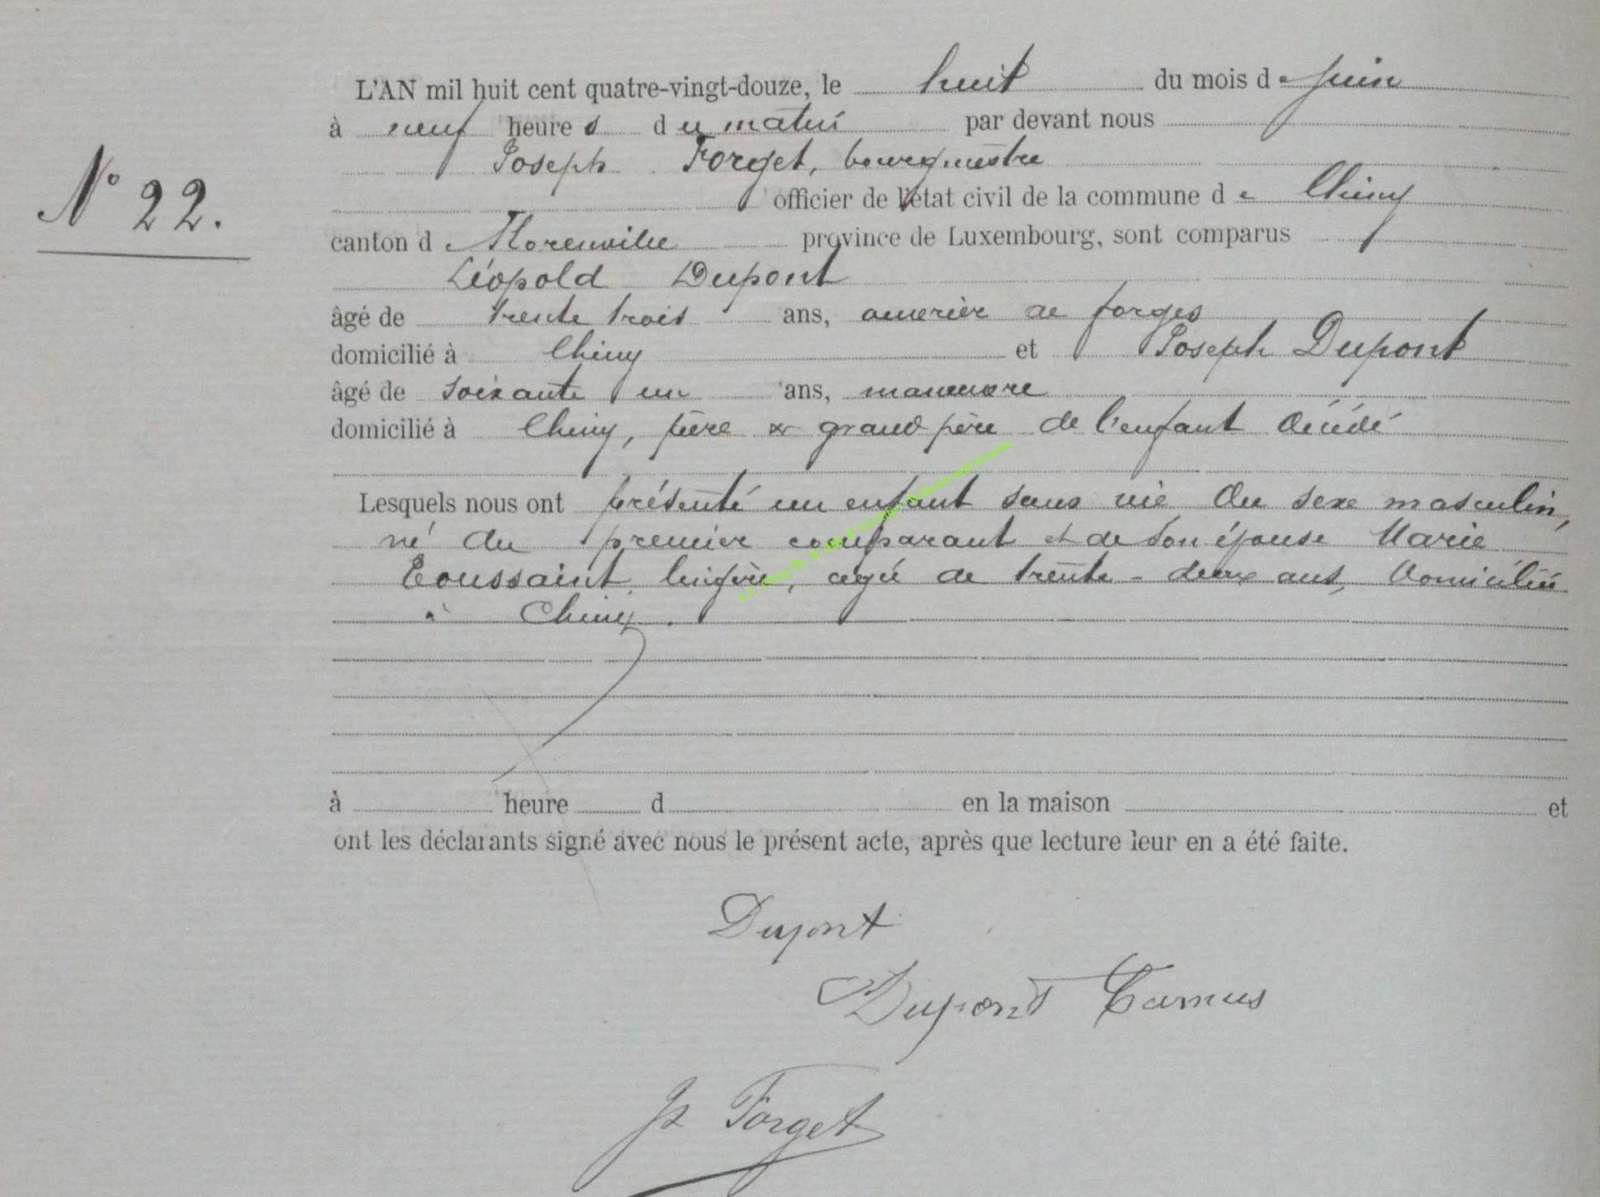 L'AN mil huit cent quatre-vingt-douze, le huit du mois de Juin
à neuf heures du matin par devant nous
N° 22.
Joseph Forget, bourgmestre
officier de l'état civil de la commune de Chiny
canton de Florenville province de Luxembourg, sont comparus
Léopold Dupont
âgé de trente trois ans, ouvrier de forges
domicilié à Chiny et Joseph Dupont
âgé de soixante un ans, manœuvre
domicilié à Chiny, père et grand père de l'enfant décédé
Lesquels nous ont présenté un enfant sans vie du sexe masculin,
né du premier comparant et de son épouse Marie
Toussaint, lingère, agée de trente-deux ans, domiciliée
à Chiny.
à heure d en la maison et
ont les déclarants signé avec nous le présent acte, après que lecture leur en a été faite.
Dupont
Dupont Camus
Js Forget